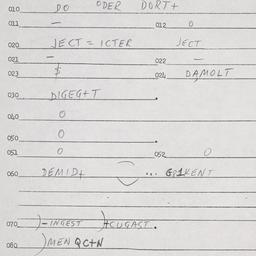 010 DO ODER DORT+
011 — 012 O
020 JECT = ICTER JECT
021 — 022 —
023 $ 024 DAMOLT
030 DIGEG+T
040 O
050 O
051 O 052 O
060 DEMID+ ...
070 )-INGEST )+CUGAST.
080 )MEN QC+N